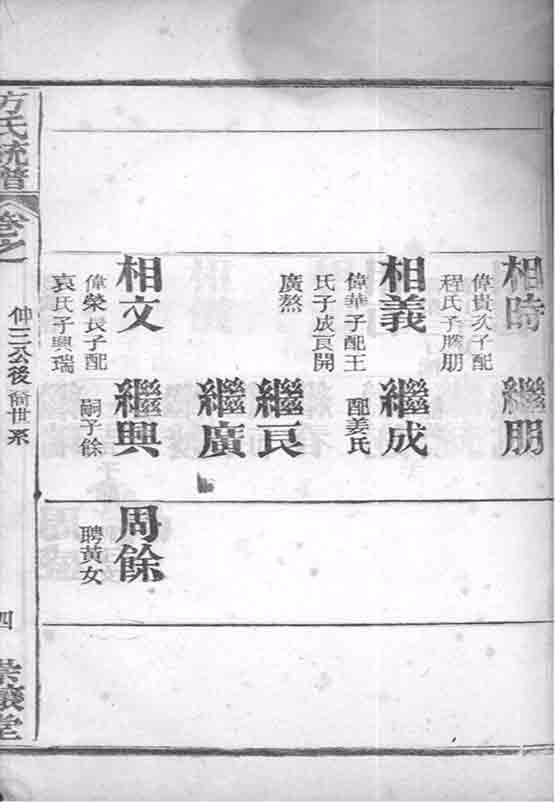 相時
偉貴次子配
程氏子勝朋
繼朋
相義
偉華子配王
氏子成良開
廣熬
繼成
配姜氏
繼良
繼廣
相文
偉榮長子配
袁氏子興瑞
繼興
嗣子餘
周餘
聘黃女
方氏統譜
卷之
仲三公後裔世系
四
崇讓堂